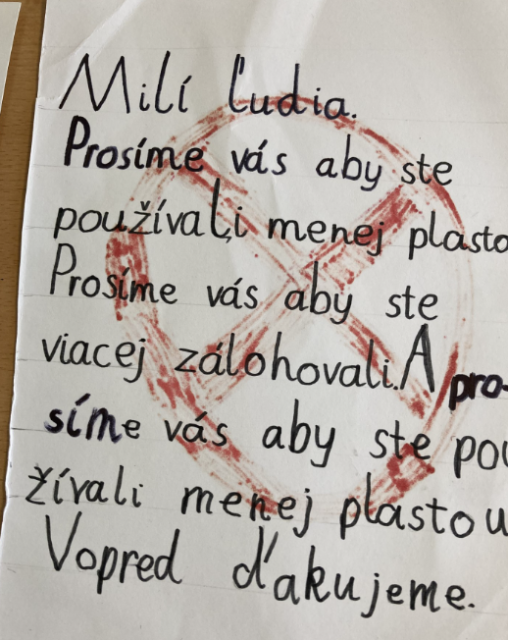 Milí Ľudia.
Prosíme vás aby ste
používali menej plasto
Prosíme vás aby ste
viacej zálohovali. A pro-
síme vás aby ste pou
žívali menej plastou
Vopred ďakujeme.